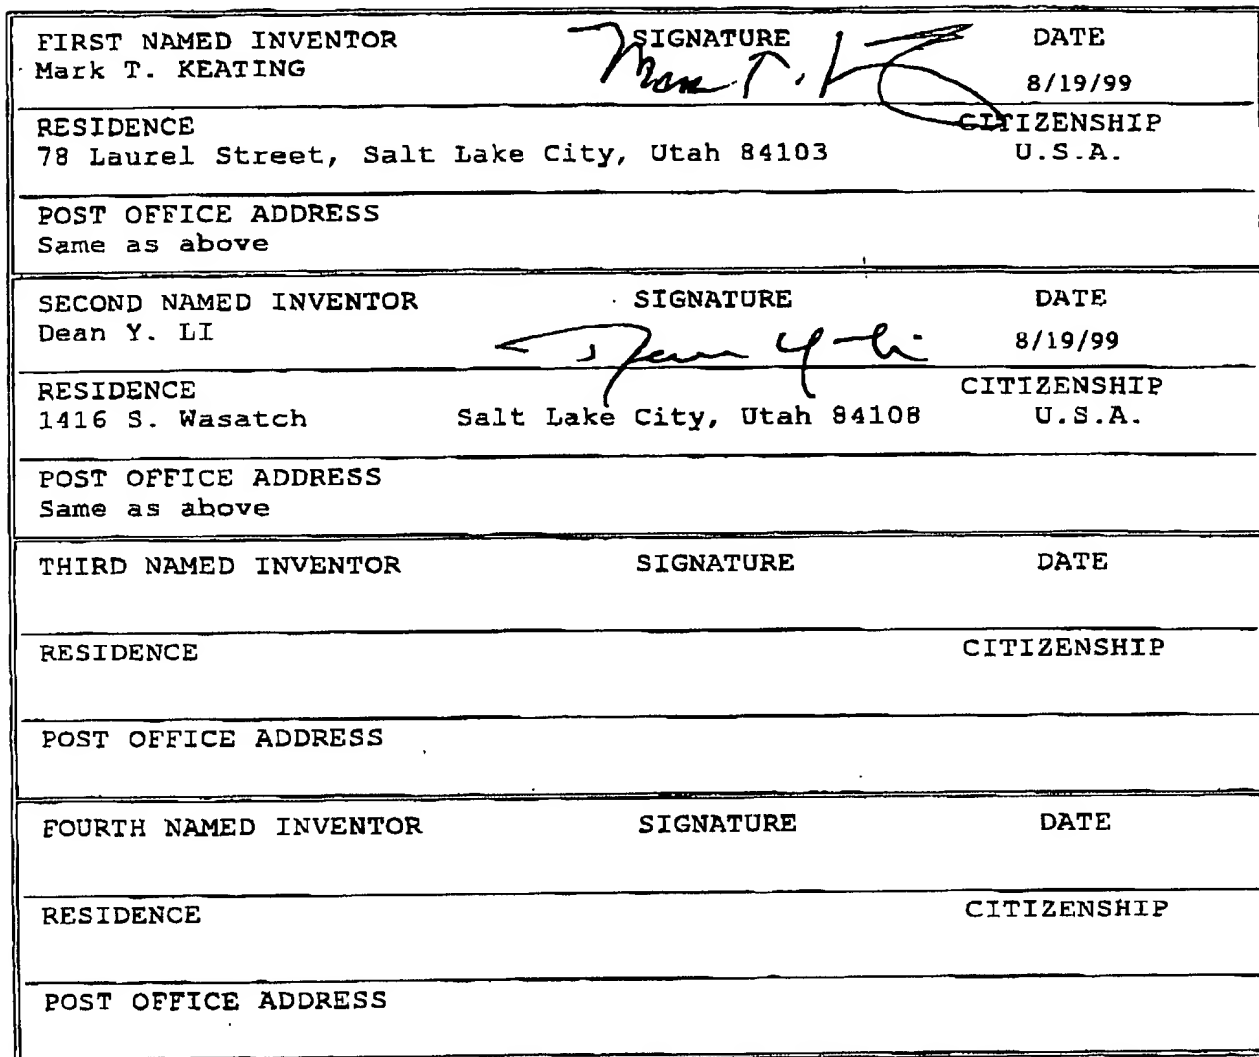 FIRST NAMED INVENTOR SIGNATURE DATE
Mark T. KEATING 8/19/99
RESIDENCE CITIZENSHIP
78 Laurel Street, Salt Lake City, Utah 84103 U.S.A.
POST OFFICE ADDRESS
Same as above
SECOND NAMED INVENTOR SIGNATURE DATE
Dean Y. LI 8/19/99
RESIDENCE CITIZENSHIP
1416 S. Wasatch Salt Lake City, Utah 84108 U.S.A.
POST OFFICE ADDRESS
Same as above
THIRD NAMED INVENTOR SIGNATURE DATE
RESIDENCE CITIZENSHIP
POST OFFICE ADDRESS
FOURTH NAMED INVENTOR SIGNATURE DATE
RESIDENCE CITIZENSHIP
POST OFFICE ADDRESS